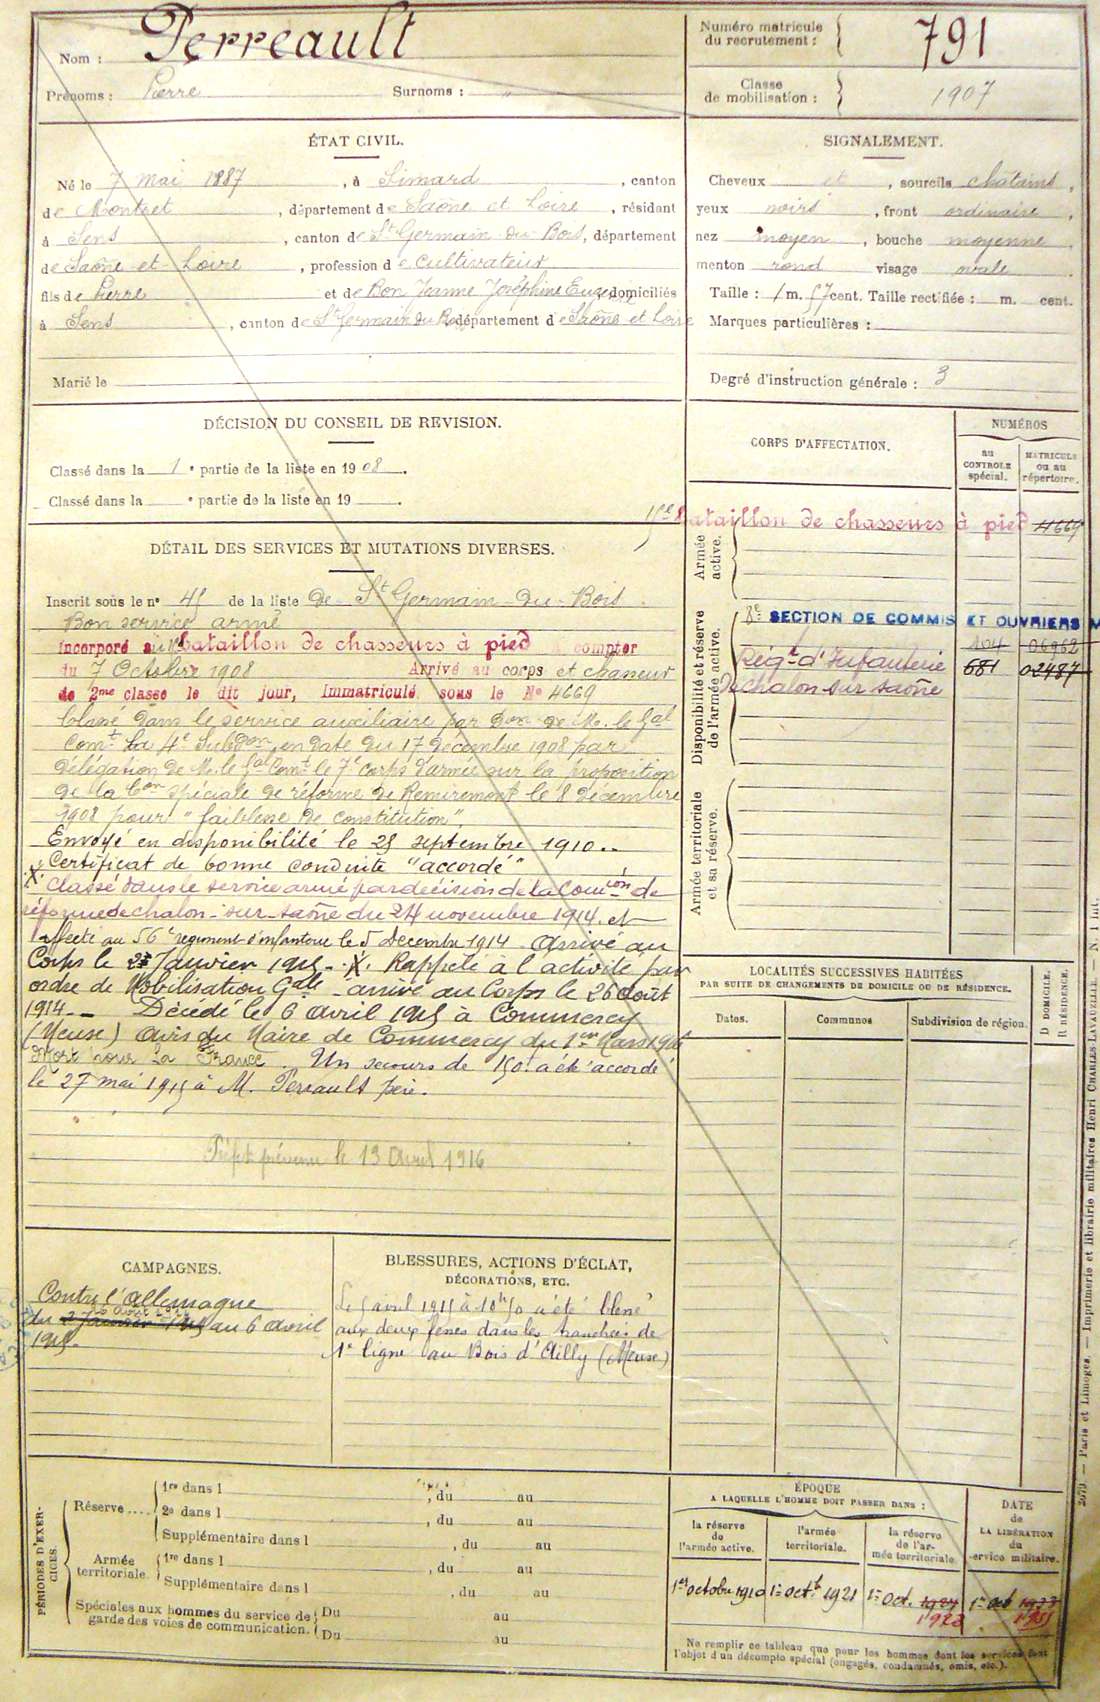 Nom : Perreault
Prénoms : Pierre Surnoms : "
Numéro matricule du recrutement : 791
Classe de mobilisation : 1907
ÉTAT CIVIL.
Né le 7 mai 1887, à Simard, canton
de Montret, département de Saône et Loire, résidant
à Sens, canton de St Germain du Bois, département
de Saône-et-Loire, profession de cultivateur
fils de Pierre et de Bon Jeanne Joséphine domiciliés
à Sens, canton de St Germain du Bois département de Saône et Loire
Marié le
SIGNALEMENT.
Cheveux et, sourcils châtains,
yeux noirs, front ordinaire,
nez moyen, bouche moyenne
menton rond visage ovale
Taille : 1 m. 57 cent. Taille rectifiée : m. cent.
Marques particulières :
Degré d'instruction générale : 3
DÉCISION DU CONSEIL DE REVISION.
Classé dans la 1e partie de la liste en 1908.
Classé dans la e partie de la liste en 19 .
DÉTAIL DES SERVICES ET MUTATIONS DIVERSES.
Inscrit sous le no 45 de la liste de St Germain du Bois
Bon service armé
incorporé au bataillon de chasseurs à pied à compter
du 7 Octobre 1908 Arrivé au corps et chasseur
de 2me classe le dit jour, Immatriculé sous le No 4669
Classé dans le service auxiliaire par Don de M. le Gal
Comt la 4e Subdon en date du 17 décembre 1908 par
délégation de M. le Gal Comt le 7e corps d'armée sur la proposition
de la Con spéciale de réforme de Remiremont le 8 décembre
1908 pour "faiblesse de constitution"
Envoyé en disponibilité le 25 septembre 1910..
Certificat de bonne conduite "accordé"
X Classé dans le service armé par décision de la Comon de
réforme de chalon-sur-saône du 24 novembre 1914 et
affecté au 56e régiment d'infanterie le 5 Décembre 1914 arrivé au
Corps le 2 Janvier 1915. X. Rappelé à l'activité par
ordre de Mobilisation Gale arrivé au Corps le 26 août
1914 — Décédé le 6 avril 1915 à Commercy
(Meuse) avis du Maire de Commercy du 1er Mars 1916
Mort pour la France. Un secours de 150f a été accordé
le 27 mai 1915 à M. Perreault père.
Préfet prévenu le 13 Avril 1916
CORPS D'AFFECTATION.
NUMÉROS
au CONTROLE spécial.
MATRICULE ou au répertoire.
Armée active.
15e bataillon de chasseurs à pied 4669
Disponibilité et réserve de l'armée active.
8e SECTION DE COMMIS ET OUVRIERS M
104 06962
Régt d'Infanterie 681 02487
De chalon sur saône
Armée territoriale et sa réserve.
LOCALITÉS SUCCESSIVES HABITÉES
PAR SUITE DE CHANGEMENTS DE DOMICILE OU DE RÉSIDENCE.
Dates. Communes Subdivision de région. D DOMICILE. R RÉSIDENCE.
CAMPAGNES.
Contre l'Allemagne
26 août 1914
du 2 Janvier 1915 au 6 avril
1915.
BLESSURES, ACTIONS D'ÉCLAT,
DÉCORATIONS, ETC.
Le 5 avril 1915 à 10h50 a été blessé
aux deux fesses dans les tranchées de
1e ligne au Bois d'Ailly (Meuse)
PÉRIODES D'EXERCICES.
Réserve .... 1re dans l , du au
2e dans l , du au
Supplémentaire dans l , du au
Armée territoriale. 1re dans l , du au
Supplémentaire dans l , du au
Spéciales aux hommes du service de garde des voies de communication. Du au
Du au
ÉPOQUE
A LAQUELLE L'HOMME DOIT PASSER DANS :
la réserve de l'armée active.
l'armée territoriale.
la réserve de l'armée territoriale.
DATE de LA LIBÉRATION du service militaire.
1er octobre 1910 1er octb 1921 1er oct. 1927 1er oct 1933
1928
Ne remplir ce tableau que pour les hommes dont les services font
l'objet d'un décompte spécial (engagés, condamnés, omis, etc.).
2079. — Paris et Limoges. — Imprimerie et librairie militaires Henri CHARLES-LAVAUZELLE. — N. 1 Int.